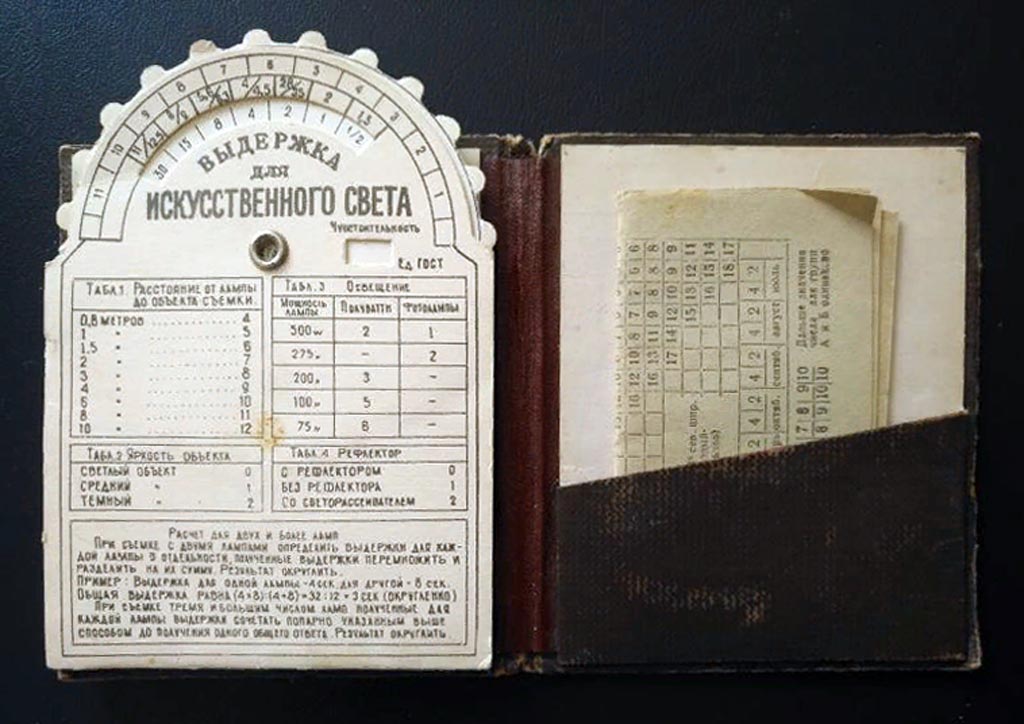 11 10 9 8 7 6 5 4 3 2 1
30 15 8 4 2 1 1/2
ВЫДЕРЖКА
ДЛЯ
ИСКУССТВЕННОГО СВЕТА
Чувствительность
ЕД. ГОСТ
ТАБЛ.1. РАССТОЯНИЕ ОТ ЛАМПЫ
ДО ОБЪЕКТА СЪЕМКИ.
0,8 МЕТРОВ 4
1 " 5
1,5 " 6
2 " 7
3 " 8
4 " 9
6 " 10
8 " 11
10 " 12
ТАБЛ.3 ОСВЕЩЕНИЕ
МОЩНОСТЬ ЛАМПЫ ПОЛУВАТТН ФОТОЛАМПЫ
500w 2 1
275w – 2
200w 3 –
100w 5 –
75w 6 –
ТАБЛ.2 ЯРКОСТЬ ОБЪЕКТА
СВЕТЛЫЙ ОБЪЕКТ 0
СРЕДНИЙ " 1
ТЕМНЫЙ " 2
ТАБЛ.4 РЕФЛЕКТОР
С РЕФЛЕКТОРОМ 0
БЕЗ РЕФЛЕКТОРА 1
СО СВЕТОРАССЕИВАТЕЛЕМ 2
РАСЧЕТ ДЛЯ ДВУХ И БОЛЕЕ ЛАМП
ПРИ СЪЕМКЕ С ДВУМЯ ЛАМПАМИ ОПРЕДЕЛИТЬ ВЫДЕРЖКИ ДЛЯ КАЖ-
ДОЙ ЛАМПЫ В ОТДЕЛЬНОСТИ, ПОЛУЧЕННЫЕ ВЫДЕРЖКИ ПЕРЕМНОЖИТЬ И
РАЗДЕЛИТЬ НА ИХ СУММУ. РЕЗУЛЬТАТ ОКРУГЛИТЬ.
ПРИМЕР: ВЫДЕРЖКА ДЛЯ ОДНОЙ ЛАМПЫ - 4 СЕК. ДЛЯ ДРУГОЙ - 8 СЕК.
ОБЩАЯ ВЫДЕРЖКА РАВНА (4×8):(4+8)=32:12=3 СЕК (ОКРУГЛЕННО)
ПРИ СЪЕМКЕ ТРЕМЯ И БОЛЬШИМ ЧИСЛОМ ЛАМП ПОЛУЧЕННЫЕ ДЛЯ
КАЖДОЙ ЛАМПЫ ВЫДЕРЖКИ СОЧЕТАТЬ ПОПАРНО УКАЗАННЫМ ВЫШЕ
СПОСОБОМ ДО ПОЛУЧЕНИЯ ОДНОГО ОБЩЕГО ОТВЕТА. РЕЗУЛЬТАТ ОКРУГЛИТЬ.
сев. шир.
октяб. сентяб. август июль
2 4 2 4 2 4 2 4 2
Дальше значения
числа для группы
А и Б одинаково
7 8 9 10
8 9 10 10